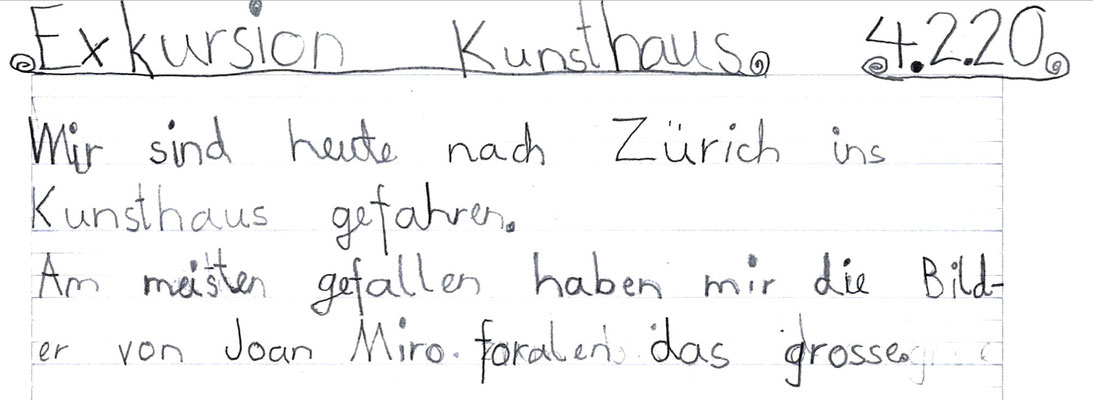 Exkursion Kunsthaus 4.2.20
Mir sind heute nach Zürich ins
Kunsthaus gefahren.
Am meisten gefallen haben mir die Bild-
er von Joan Miro. foralen das grosse.